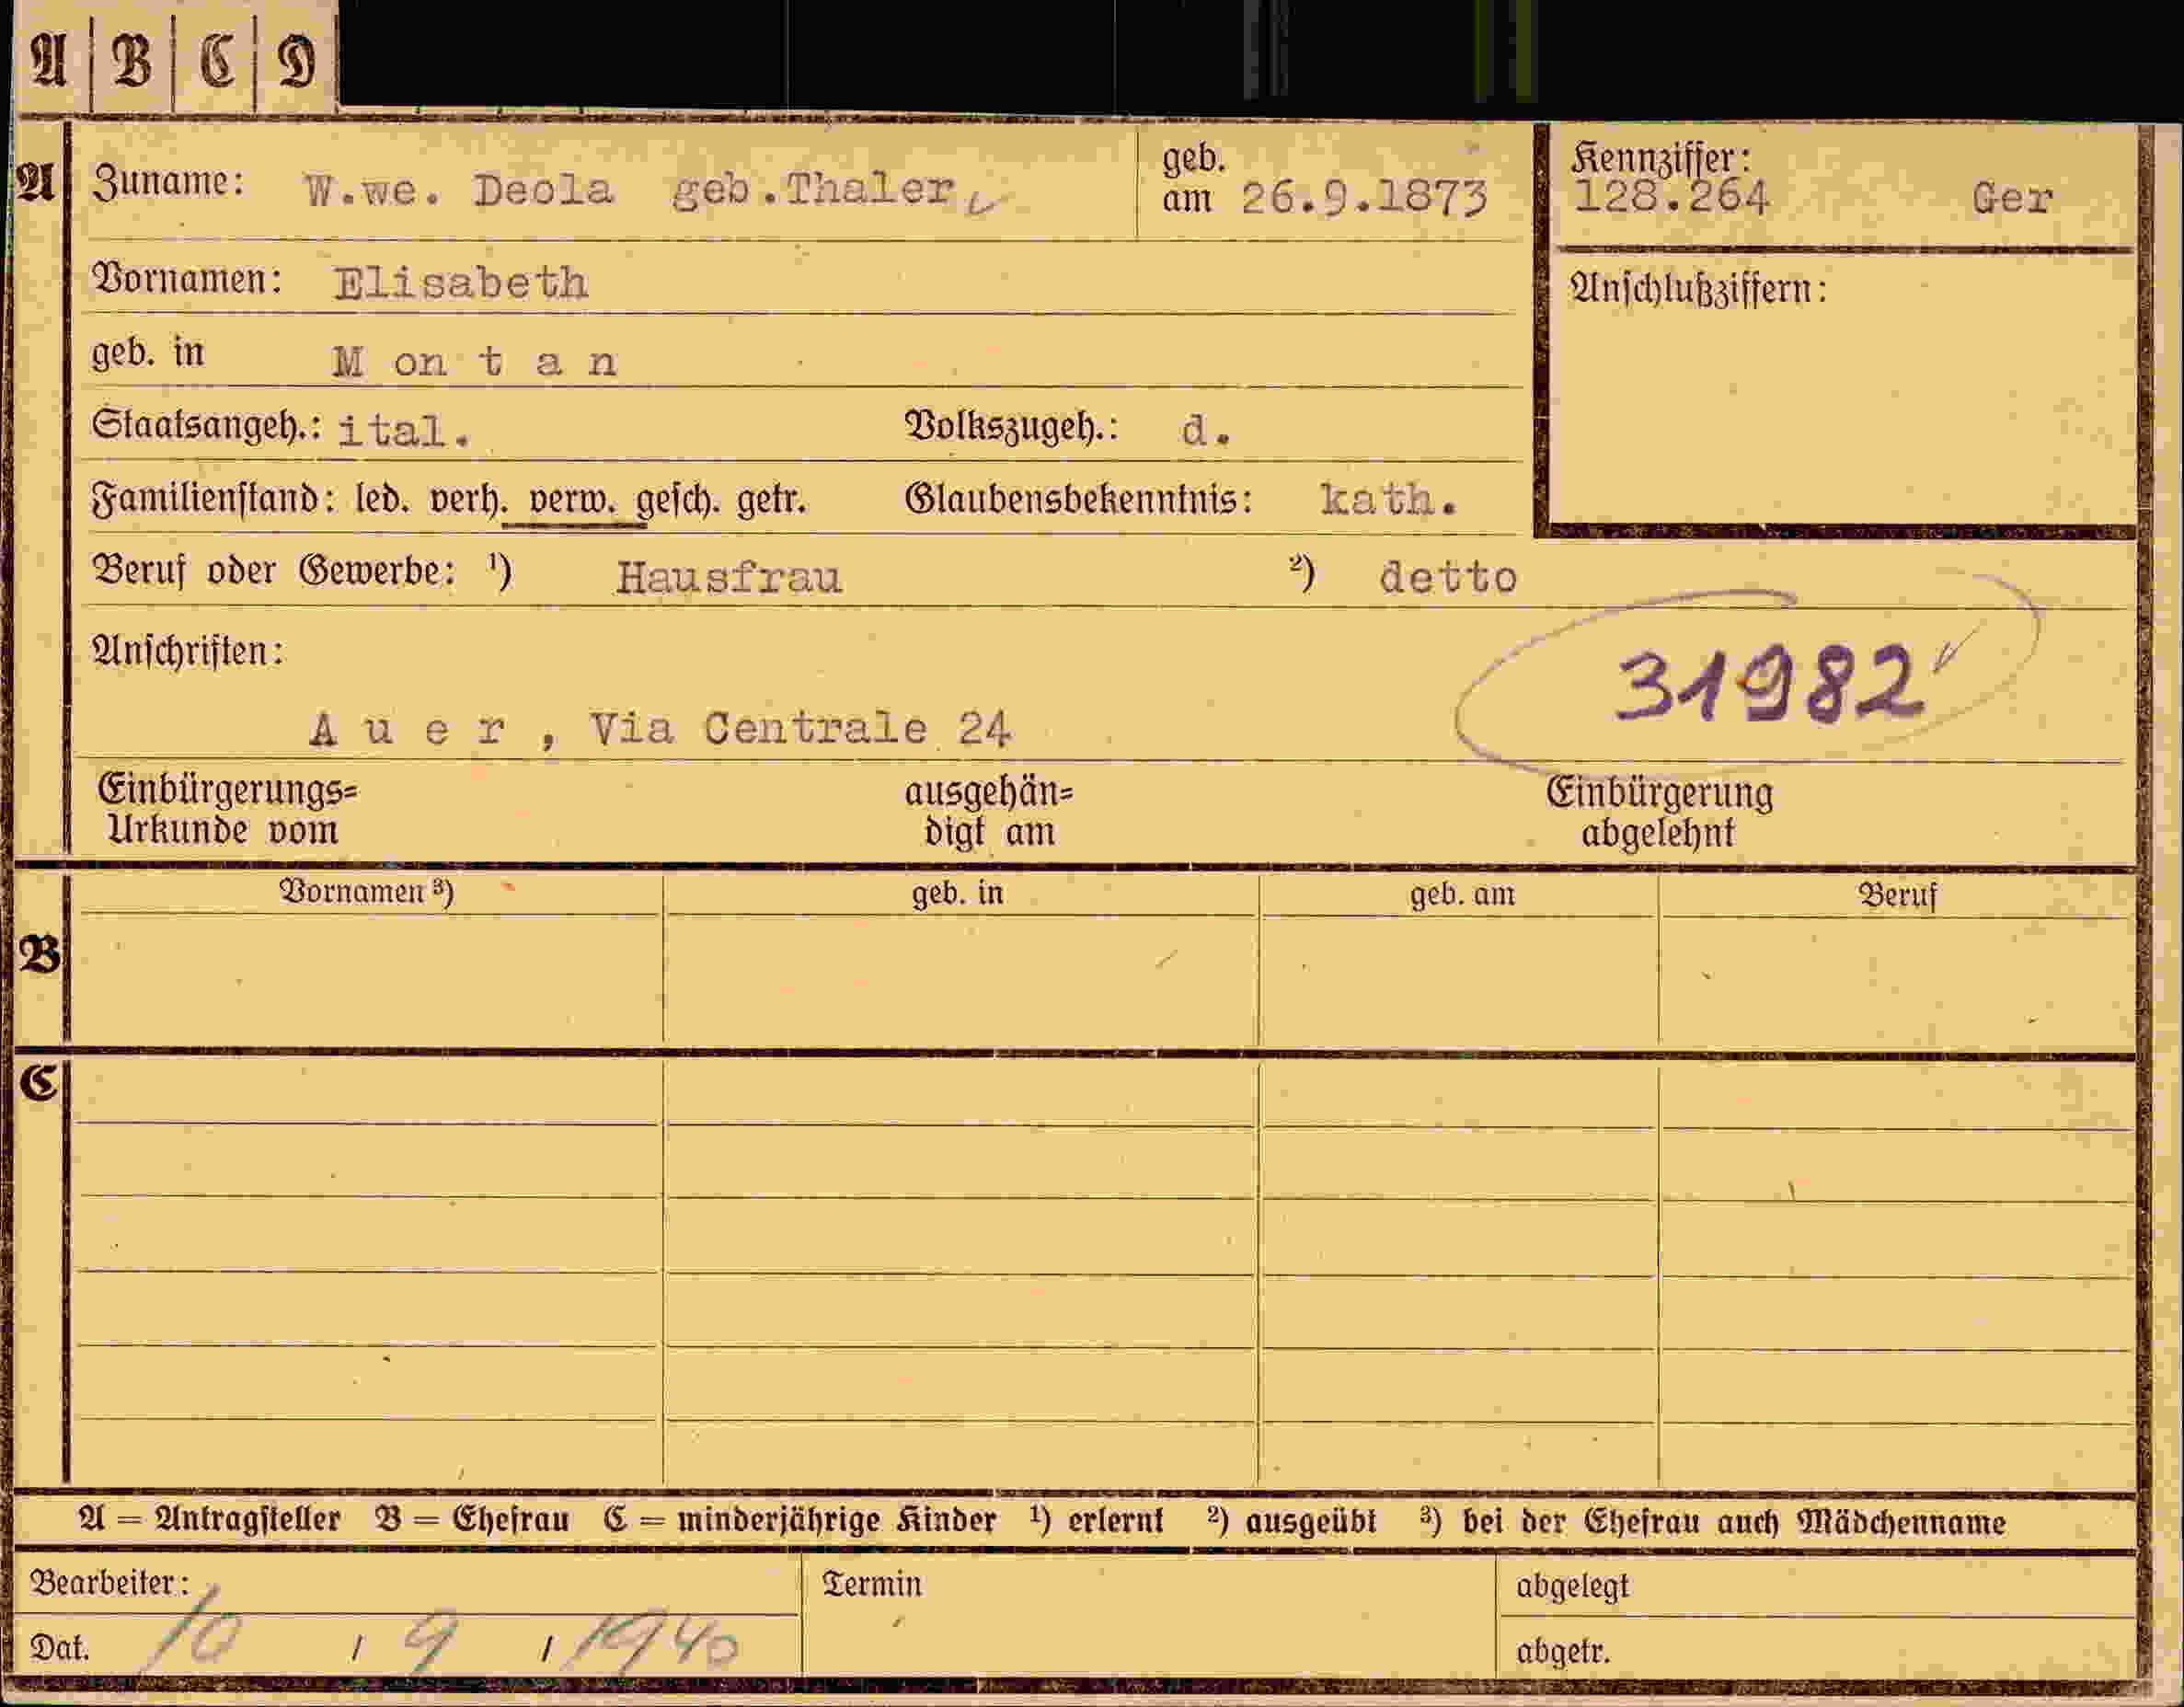 A | B | C | D
A Zuname: W.we. Deola geb.Thaler geb. am 26.9.1873
Kennziffer: 128.264 Ger
Vornamen: Elisabeth
Anschlußziffern:
geb. in M on t a n
Staatsangeh.: ital. Volkszugeh.: d.
Familienstand: led. verh. verw. gesch. getr. Glaubensbekenntnis: kath.
Beruf oder Gewerbe: ¹) Hausfrau ²) detto
Anschriften:
31982
A u e r , Via Centrale 24
Einbürgerungs= ausgehän= Einbürgerung
Urkunde vom digt am abgelehnt
Vornamen ³) geb. in geb. am Beruf
B
C
A = Antragsteller B = Ehefrau C = minderjährige Kinder ¹) erlernt ²) ausgeübt ³) bei der Ehefrau auch Mädchenname
Bearbeiter: Termin abgelegt
Dat. 10 / 9 / 1940 abgetr.